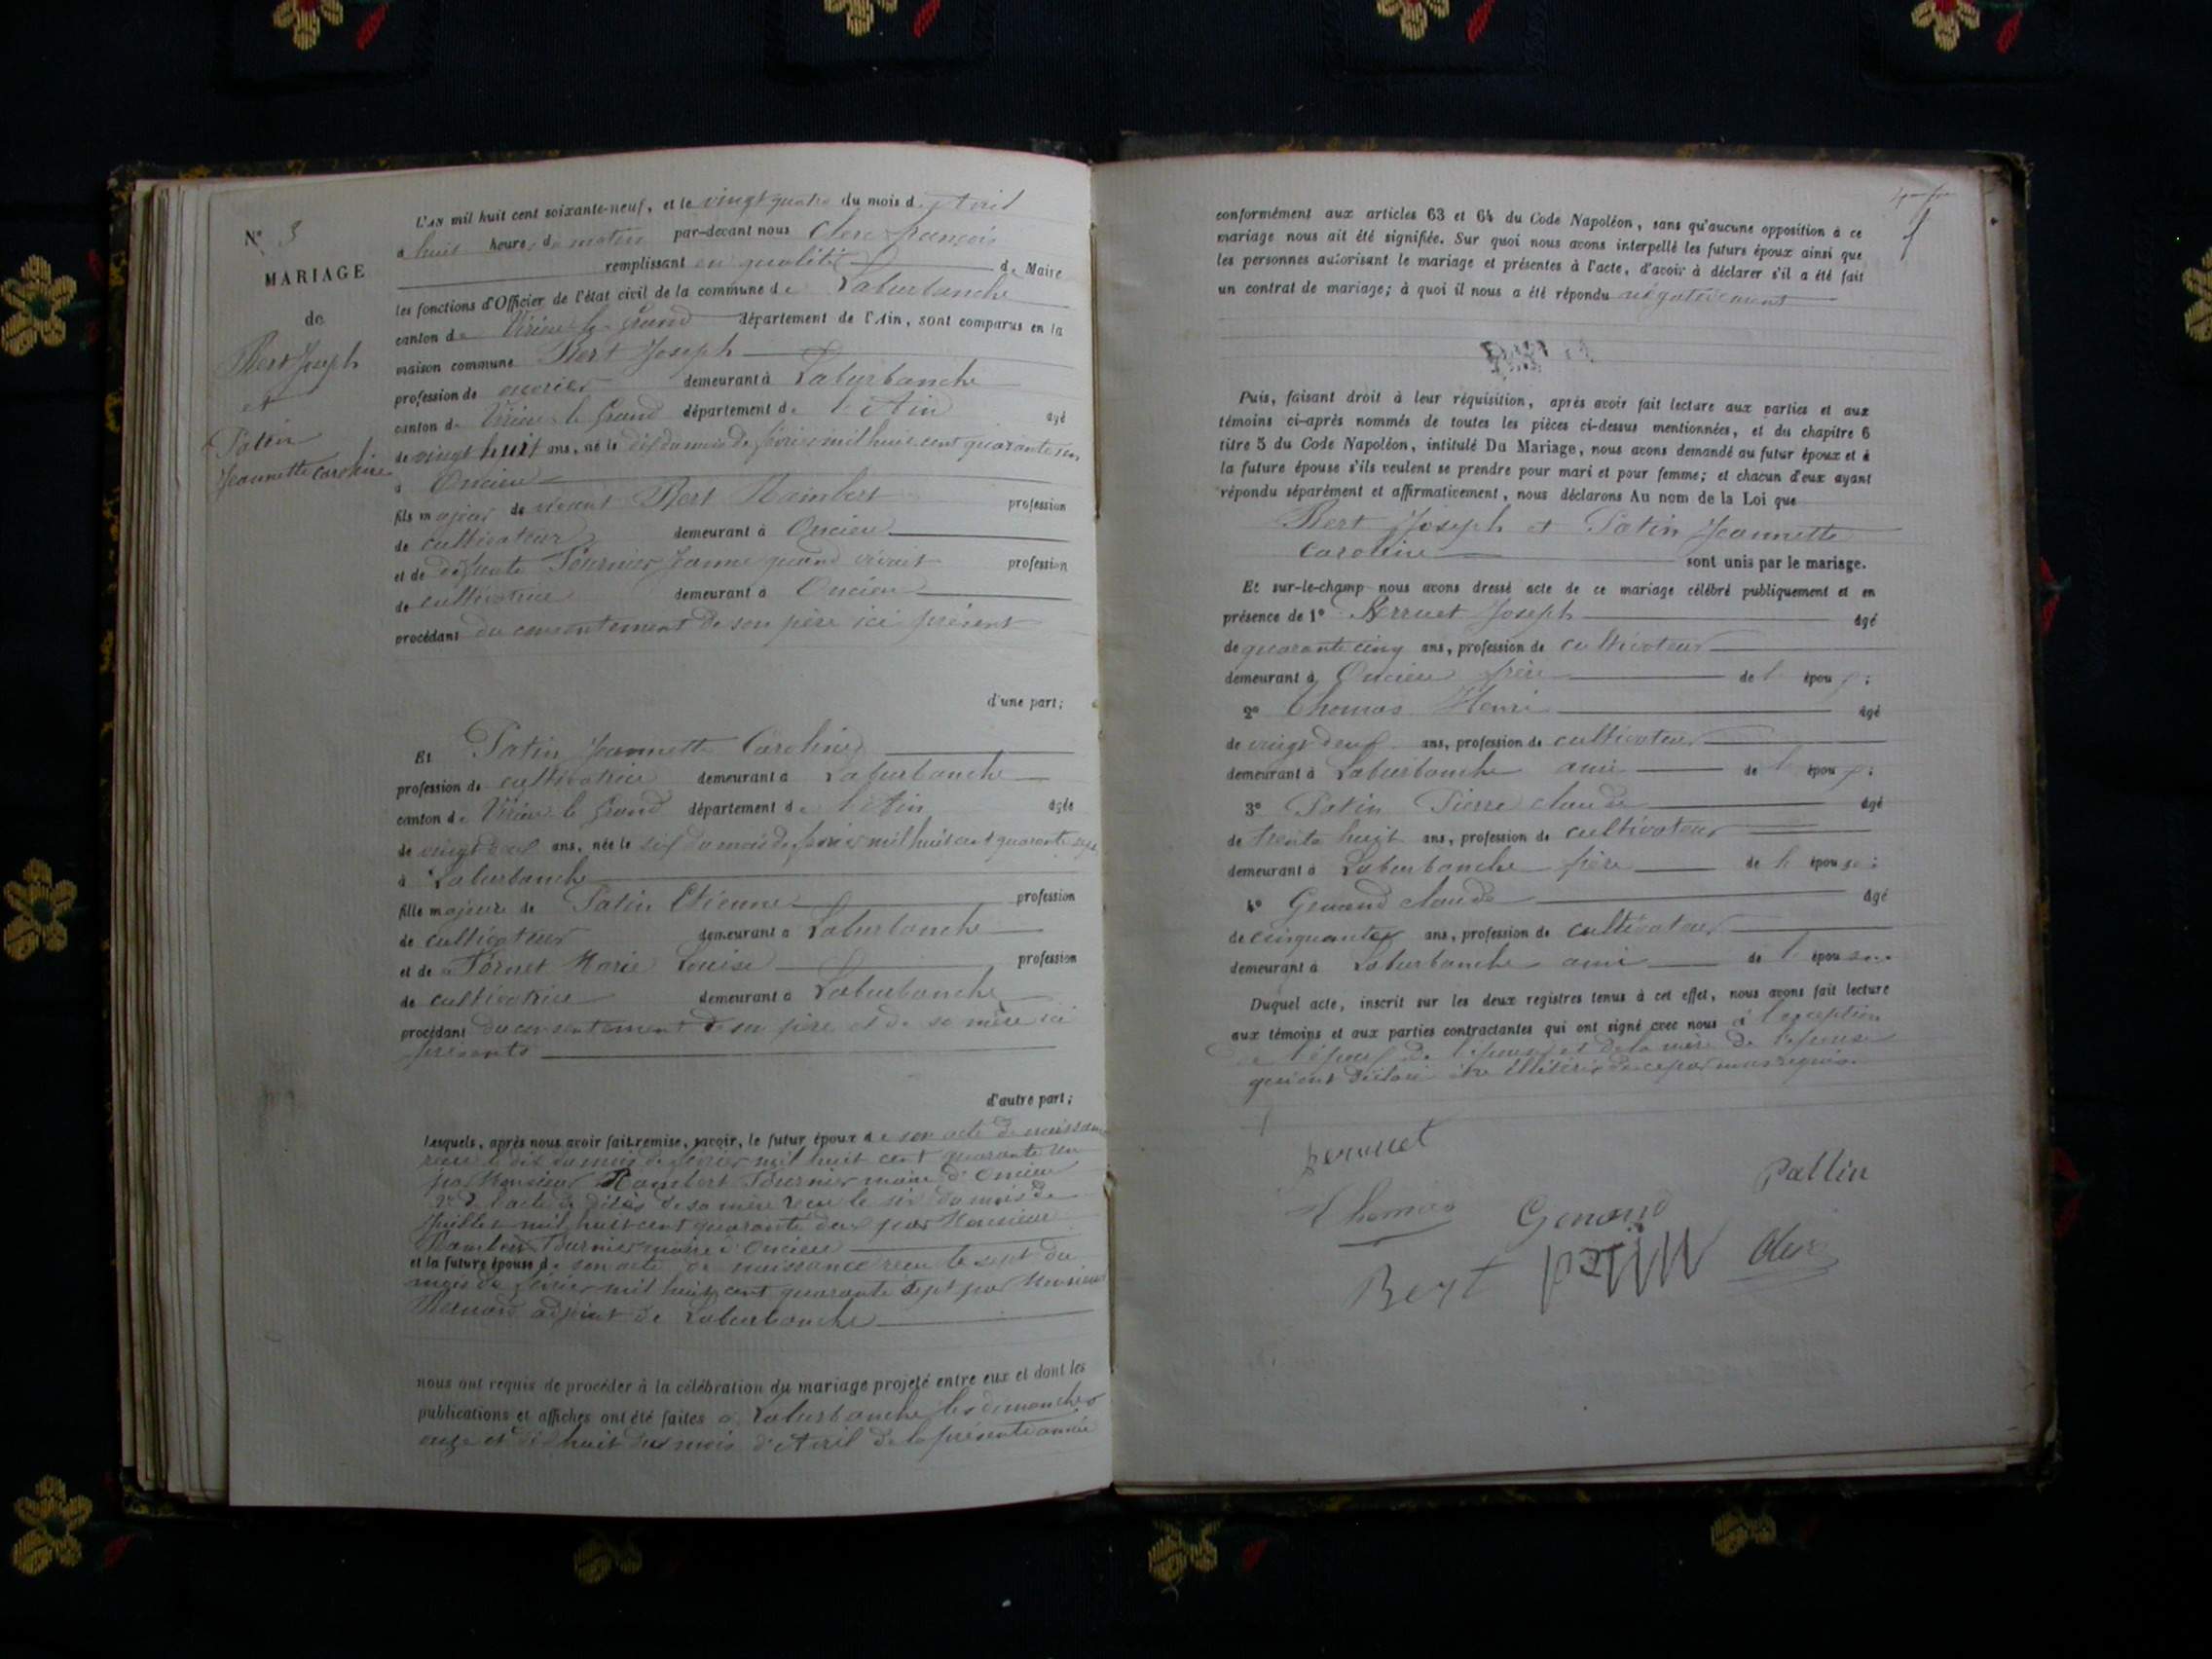 N° 3
MARIAGE
de
Bert Joseph
et
Patin
Jeannette Caroline
L'AN mil huit cent soixante-neuf, et le vingt quatre du mois d'Avril
à huit heures du matin par-devant nous Clerc françois
remplissant en qualité de Maire
les fonctions d'Officier de l'état civil de la commune de Laburbanche
canton de Virieu le Grand département de l'Ain, sont comparus en la
maison commune Bert Joseph
profession de demeurant à Laburbanche
canton de Virieu le Grand département de l'Ain âgé
de vingt huit ans, né le dix du mois de février mil huit cent quarante un
à Oncieu
fils majeur de vivant Bert Rambert profession
de cultivateur demeurant à Oncieu
et de défunte Fournier Jeanne quand vivait profession
de cultivatrice demeurant à Oncieu
procédant du consentement de son père ici présent
d'une part;
Et Patin Jeannette Caroline
profession de cultivatrice demeurant à Laburbanche
canton de Virieu le Grand département de l'Ain âgée
de vingt deux ans, née le six du mois de février mil huit cent quarante sept
à Laburbanche
fille majeure de Patin Etienne profession
de cultivateur demeurant à Laburbanche
et de Marie Louise profession
de cultivatrice demeurant à Laburbanche
procédant du consentement de son père et de sa mère ici
présents
d'autre part;
Lesquels, après nous avoir fait remise, savoir, le futur époux de son acte de naissance
reçu le dix du mois de février mil huit cent quarante un
par Monsieur Rambert Fournier maire d'Oncieu
2° de l'acte de décès de sa mère reçu le six du mois de
Juillet mil huit cent quarante deux par Monsieur
Rambert Fournier maire à Oncieu
et la future épouse de son acte de naissance reçu le sept du
mois de février mil huit cent quarante sept par Monsieur
adjoint de Laburbanche
nous ont requis de procéder à la célébration du mariage projeté entre eux et dont les
publications et affiches ont été faites à Laburbanche les dimanches
onze et dix huit du mois d'Avril de la présente année
conformément aux articles 63 et 64 du Code Napoléon, sans qu'aucune opposition à ce
mariage nous ait été signifiée. Sur quoi nous avons interpellé les futurs époux ainsi que
les personnes autorisant le mariage et présentes à l'acte, d'avoir à déclarer s'il a été fait
un contrat de mariage; à quoi il nous a été répondu négativement
Puis, faisant droit à leur réquisition, après avoir fait lecture aux parties et aux
témoins ci-après nommés de toutes les pièces ci-dessus mentionnées, et du chapitre 6
titre 5 du Code Napoléon, intitulé Du Mariage, nous avons demandé au futur époux et à
la future épouse s'ils veulent se prendre pour mari et pour femme; et chacun d'eux ayant
répondu séparément et affirmativement, nous déclarons Au nom de la Loi que
Bert Joseph et Patin Jeannette
Caroline sont unis par le mariage.
Et sur-le-champ nous avons dressé acte de ce mariage célébré publiquement et en
présence de 1° Perruet Joseph âgé
de quarante cinq ans, profession de cultivateur
demeurant à Oncieu frère de l'époux;
2° Thomas Henri âgé
de vingt deux ans, profession de cultivateur
demeurant à Laburbanche ami de l'époux;
3° Patin Pierre claude âgé
de trente huit ans, profession de cultivateur
demeurant à Laburbanche frère de l'épouse;
4° Genand claude âgé
de cinquante ans, profession de cultivateur
demeurant à Laburbanche ami de l'épouse.
Duquel acte, inscrit sur les deux registres tenus à cet effet, nous avons fait lecture
aux témoins et aux parties contractantes qui ont signé avec nous à l'exception
de l'épouse et de la mère de l'épouse
qui ont déclaré être illitérés de ce par nous requis.
perruet
Pattin
Thomas
Genand
Bert
Clerc